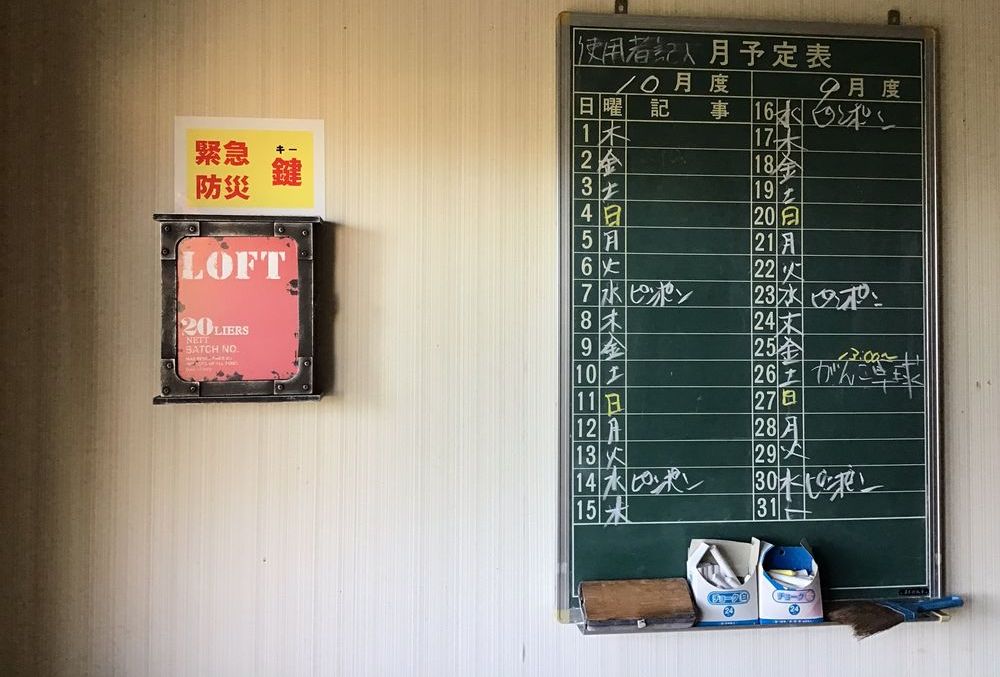 緊急
防災
キー
鍵
LOFT
20 LIERS
NETT
BATCH NO.
使用者記入 月予定表
10月度
9月度
日 曜 記事
1 木
2 金
3 土
4 日
5 月
6 火
7 水 ピンポン
8 木
9 金
10 土
11 日
12 月
13 火
14 水 ピンポン
15 木
16 水 ピンポン
17 木
18 金
19 土
20 日
21 月
22 火
23 水 ピンポン
24 木
25 金
13:00〜
26 土 がんこ卓球
27 日
28 月
29 火
30 水 ピンポン
31 ー
チョーク 白
24
チョーク
24